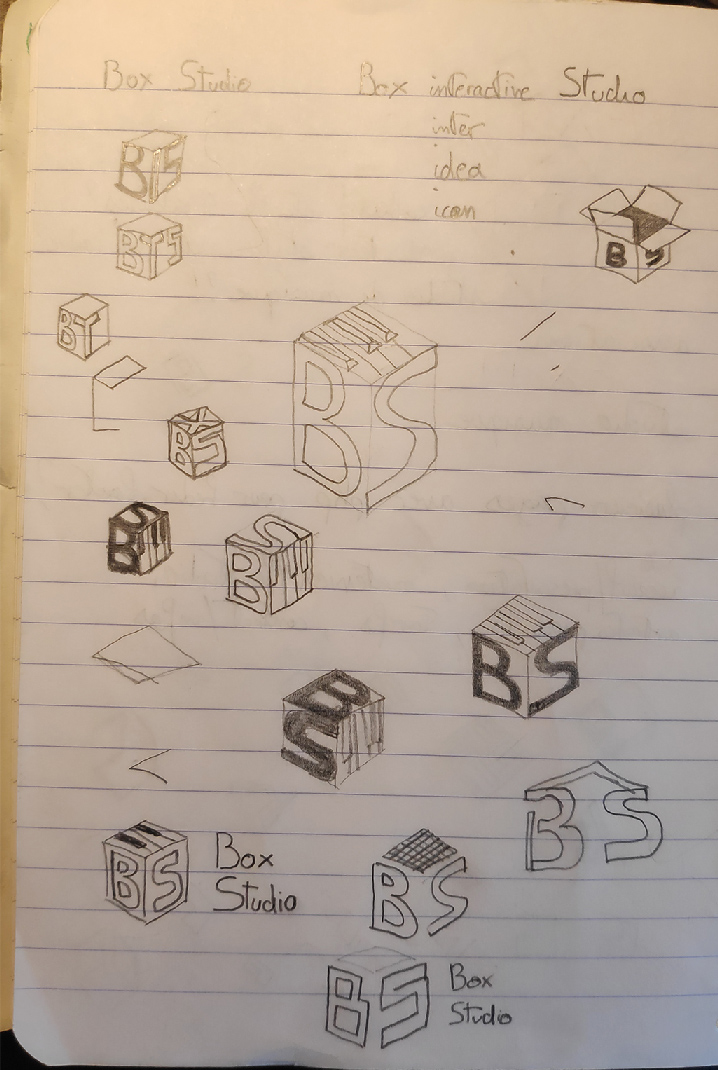 Box Studio
Box interactive Studio
inter
idea
icon
BIS
BTS
B S
BT
BS
BS
BS
BS
BS
BS
BS
BS
BS
Box
Studio
BS
BS
Box
Studio